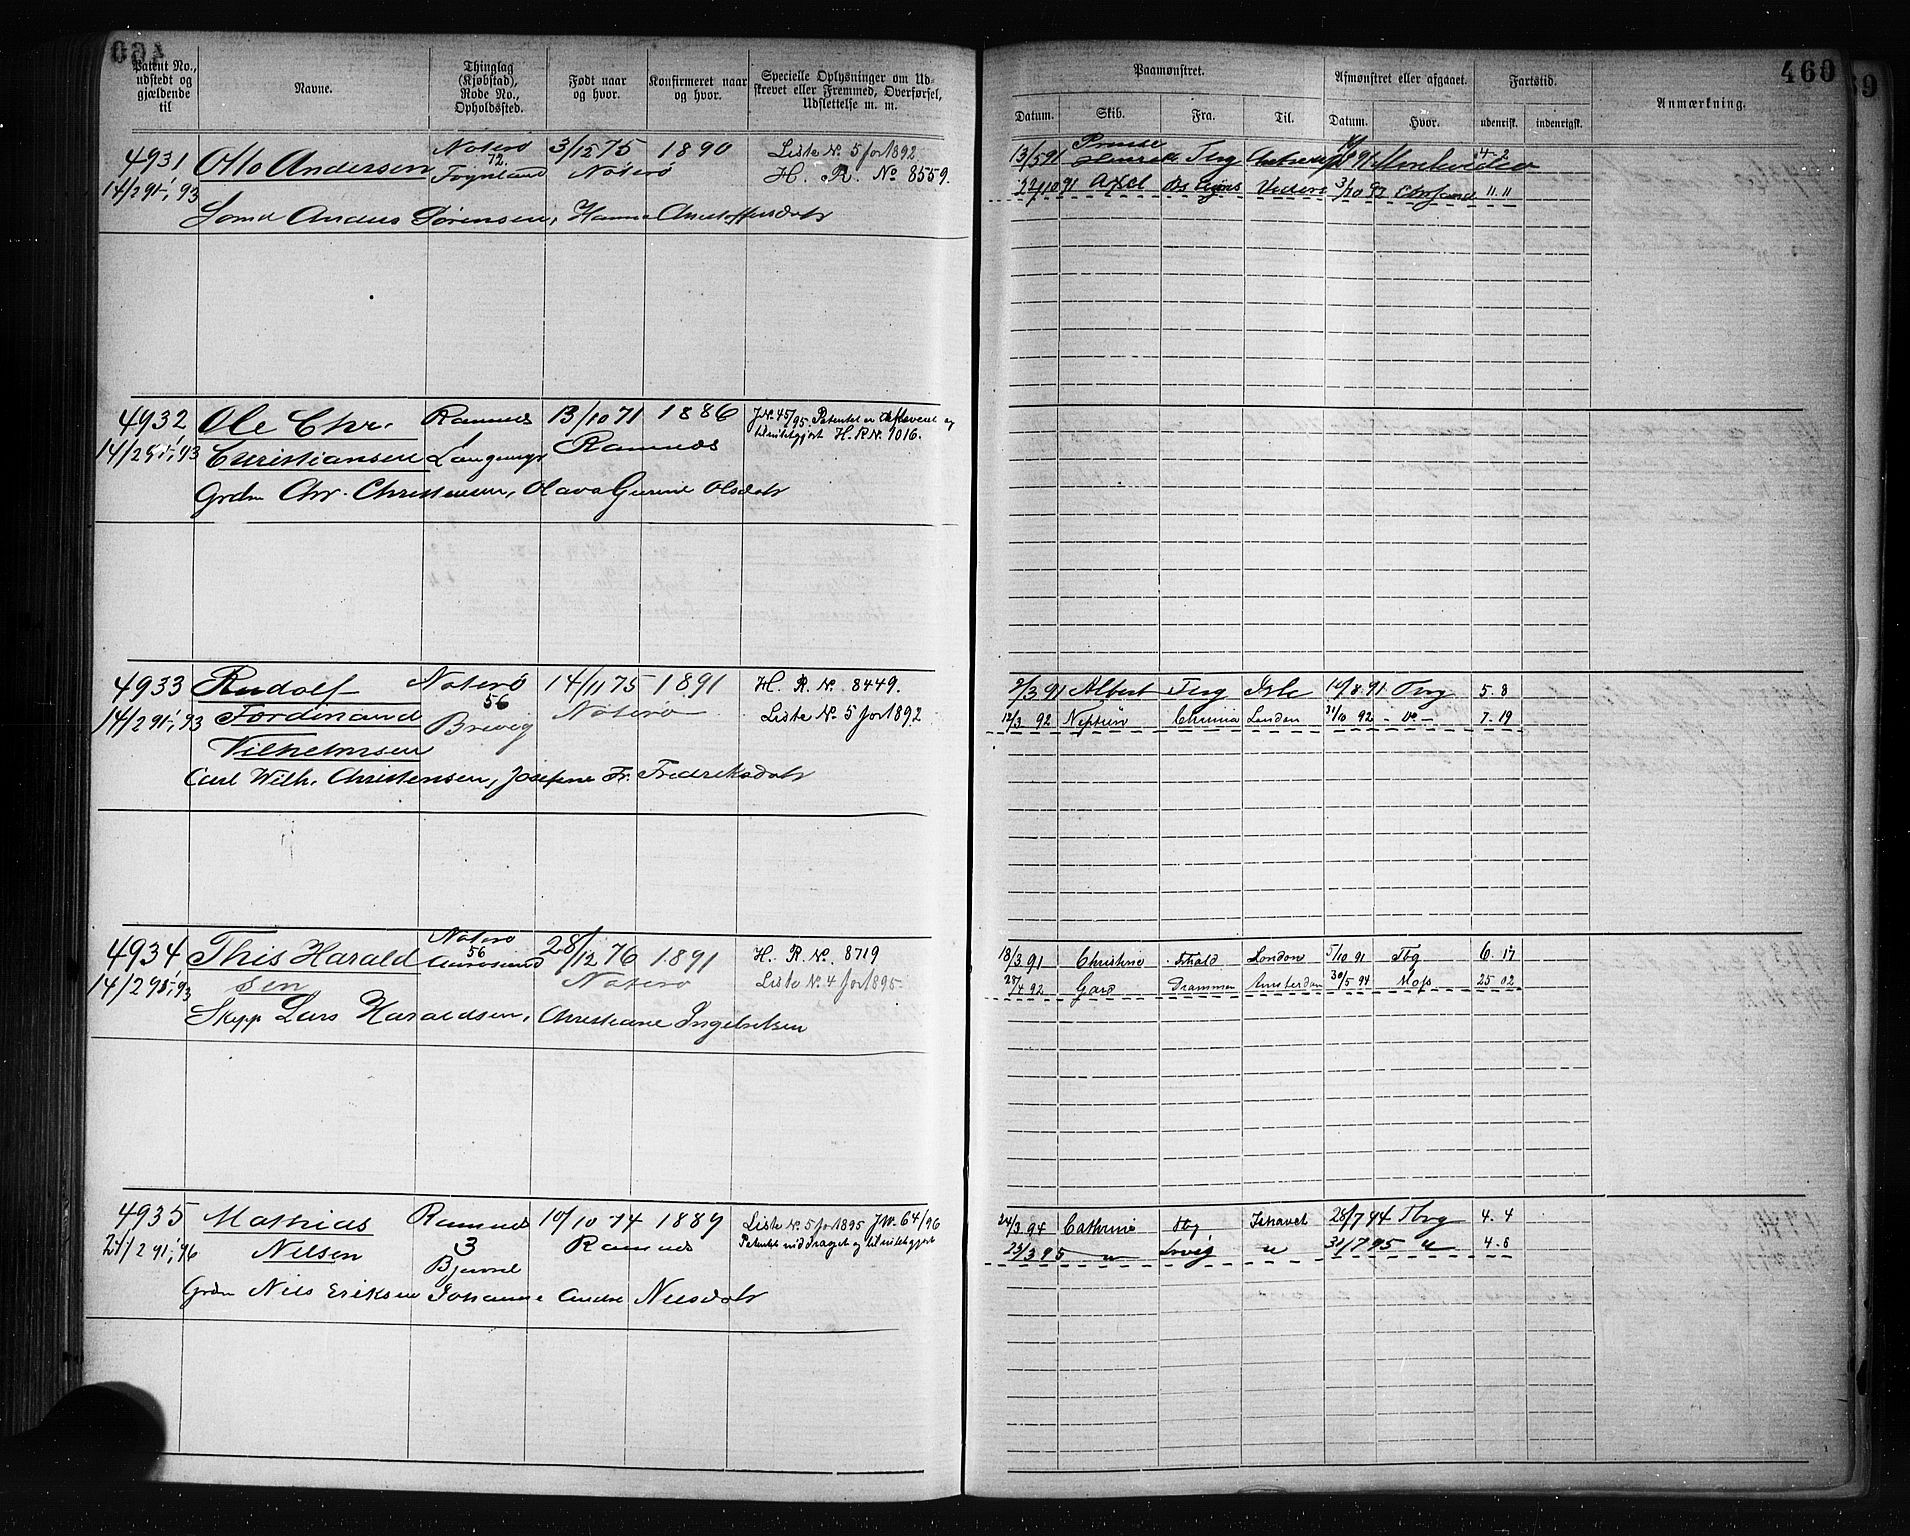 460
Patent No., udstedt og gjældende til
Navne.
Thinglag (Kjøbstad), Rode No., Opholdssted.
Født naar og hvor.
Konfirmeret naar og hvor.
Specielle Oplysninger om Udskrevet eller Fremmed, Overførsel, Udslettelse m. m.
Paamønstret.
Afmønstret eller afgaaet.
Fartstid.
Anmærkning.
Datum. Skib. Fra. Til. Datum. Hvor. udenrisk. indenrigsk.
4931 Otto Andersen Nøterø 3/12 75 1890 Liste No. 5 for 1892
14/2 91-, 93 72 Føynland Nøterø H. R. No 8559.
Sømd Anders Sørensen, Hanna Christoffersdatr
13/5 91 Prinse Tbg 91 4-2
22/10 91 Axel 3/10 92 11.11
4932 Ole Chr. Ramnes 13/10 71 1886 J.No. 45/95. Patentet er afleveret og
14/2 91-, 93 Christiansen Ramnæs tilintetgjort H. R. No. 1016.
Grdm Chr. Christensen, Olava Gurine Olsdatr
4933 Rudolf Nøterø 14/11 75 1891 H. R. No. 8449.
14/2 91-, 93 Ferdinand 56 Brevig Nøterø Liste No. 5 for 1892
Vilhelmsen
Carl Wilh. Christensen, Josefine Fr. Fredriksdatr
9/3 91 Albert Tbg 10/8 91 Tbg 5.8
12/3 92 Neptun Chrinia London 31/10 92 - do - 7.19
4934 This Harald Nøterø 28/12 76 1891 H. R. No. 8719
14/2 91-, 93 sen 56 Aarøsund Nøterø Liste No. 4 for 1895
Skipp Lars Haraldsen, Christiane Ingebretsen
18/3 91 Christine London 5/10 91 Tbg 6. 17
27/4 92 Drammen Amsterdam 30/5 94 Moss 25 02
4935 Mathias Ramnes 10/10 74 1889 Liste No. 5 for 1895 J.No. 64/96
24/2 91-, 96 Nilsen 3 Ramnes Patentet inddraget og tilintetgjort
Grdm Nils Eriksen Johanne Andrea Nilsdatr
24/3 94 Cathrine Tbg Ishavet 28/7 94 Tbg 4.4
23/3 95 " " 31/7 95 " 4.8